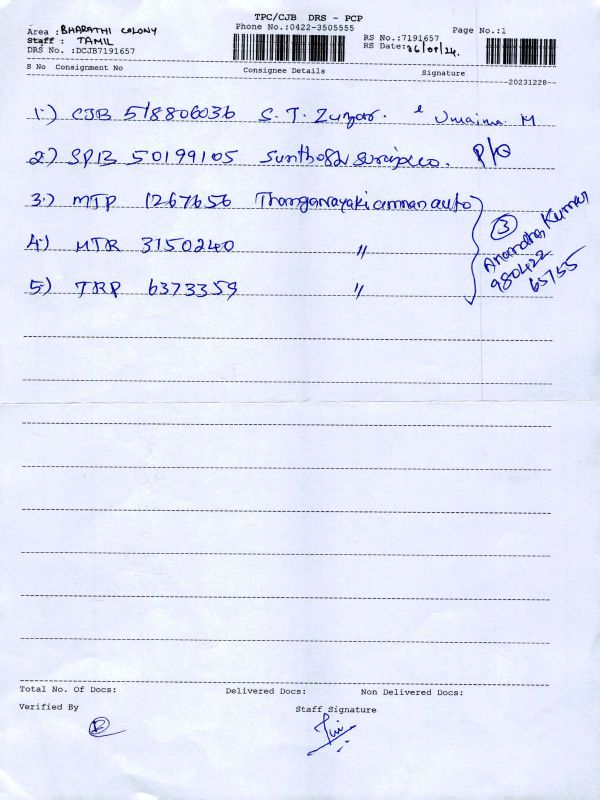 TPC/CJB DRS - PCP
Phone No.:0422-3505555
Page No.:1
Area : BHARATHI COLONY
Staff : TAMIL
DRS No. :DCJB7191657
RS No.:7191657
RS Date:26/08/24.
S No Consignment No Consignee Details Signature
20231228
1.) CJB 518806036 S. T. Zumar. Umaima. M
2.) SPIB 50199105
3.) MTP 1267656 Thanganayakiamman auto
4.) MTR 3150240 "
5.) TRP 6373359 "
3
Anandha Kumar
980422
65755
Total No. Of Docs: Delivered Docs: Non Delivered Docs:
Verified By
Staff Signature